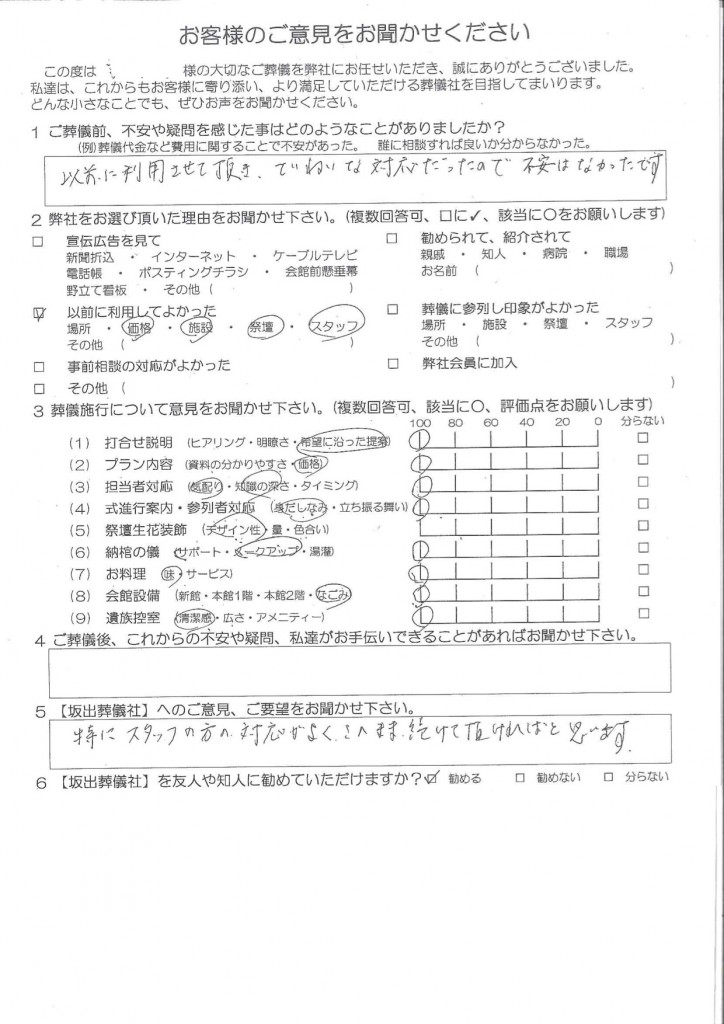 お客様のご意見をお聞かせください
この度は 様の大切なご葬儀を弊社にお任せいただき、誠にありがとうございました。
私達は、これからもお客様に寄り添い、より満足していただける葬儀社を目指してまいります。
どんな小さなことでも、ぜひお声をお聞かせください。
1 ご葬儀前、不安や疑問を感じた事はどのようなことがありましたか？
(例) 葬儀代金など費用に関することで不安があった。 誰に相談すれば良いか分からなかった。
以前に利用させて頂き、ていねいな対応だったので不安はなかったです
2 弊社をお選び頂いた理由をお聞かせ下さい。(複数回答可、□に✓、該当に○をお願いします)
□ 宣伝広告を見て
新聞折込 ・ インターネット ・ ケーブルテレビ
電話帳 ・ ポスティングチラシ ・ 会館前懸垂幕
野立て看板 ・ その他 ( )
□ 勧められて、紹介されて
親戚 ・ 知人 ・ 病院 ・ 職場
お名前 ( )
☑ 以前に利用してよかった
場所 ・ 価格 ・ 施設 ・ 祭壇 ・ スタッフ
その他 ( )
□ 葬儀に参列し印象がよかった
場所 ・ 施設 ・ 祭壇 ・ スタッフ
その他 ( )
□ 事前相談の対応がよかった
□ 弊社会員に加入
□ その他 ( )
3 葬儀施行について意見をお聞かせ下さい。(複数回答可、該当に○、評価点をお願いします)
100 80 60 40 20 0 分らない
(1) 打合せ説明 (ヒアリング・明瞭さ・希望に沿った提案) □
(2) プラン内容 (資料の分かりやすさ・価格) □
(3) 担当者対応 (気配り・知識の深さ・タイミング) □
(4) 式進行案内・参列者対応 (身だしなみ・立ち振る舞い) □
(5) 祭壇生花装飾 (デザイン性・量・色合い) □
(6) 納棺の儀 (サポート・メークアップ・湯灌) □
(7) お料理 (味・サービス) □
(8) 会館設備 (新館・本館1階・本館2階・なごみ) □
(9) 遺族控室 (清潔感・広さ・アメニティー) □
4 ご葬儀後、これからの不安や疑問、私達がお手伝いできることがあればお聞かせ下さい。
5 【坂出葬儀社】へのご意見、ご要望をお聞かせ下さい。
特にスタッフの方の対応がよく、このまま続けて頂ければと思います。
6 【坂出葬儀社】を友人や知人に勧めていただけますか？ ☑ 勧める □ 勧めない □ 分らない